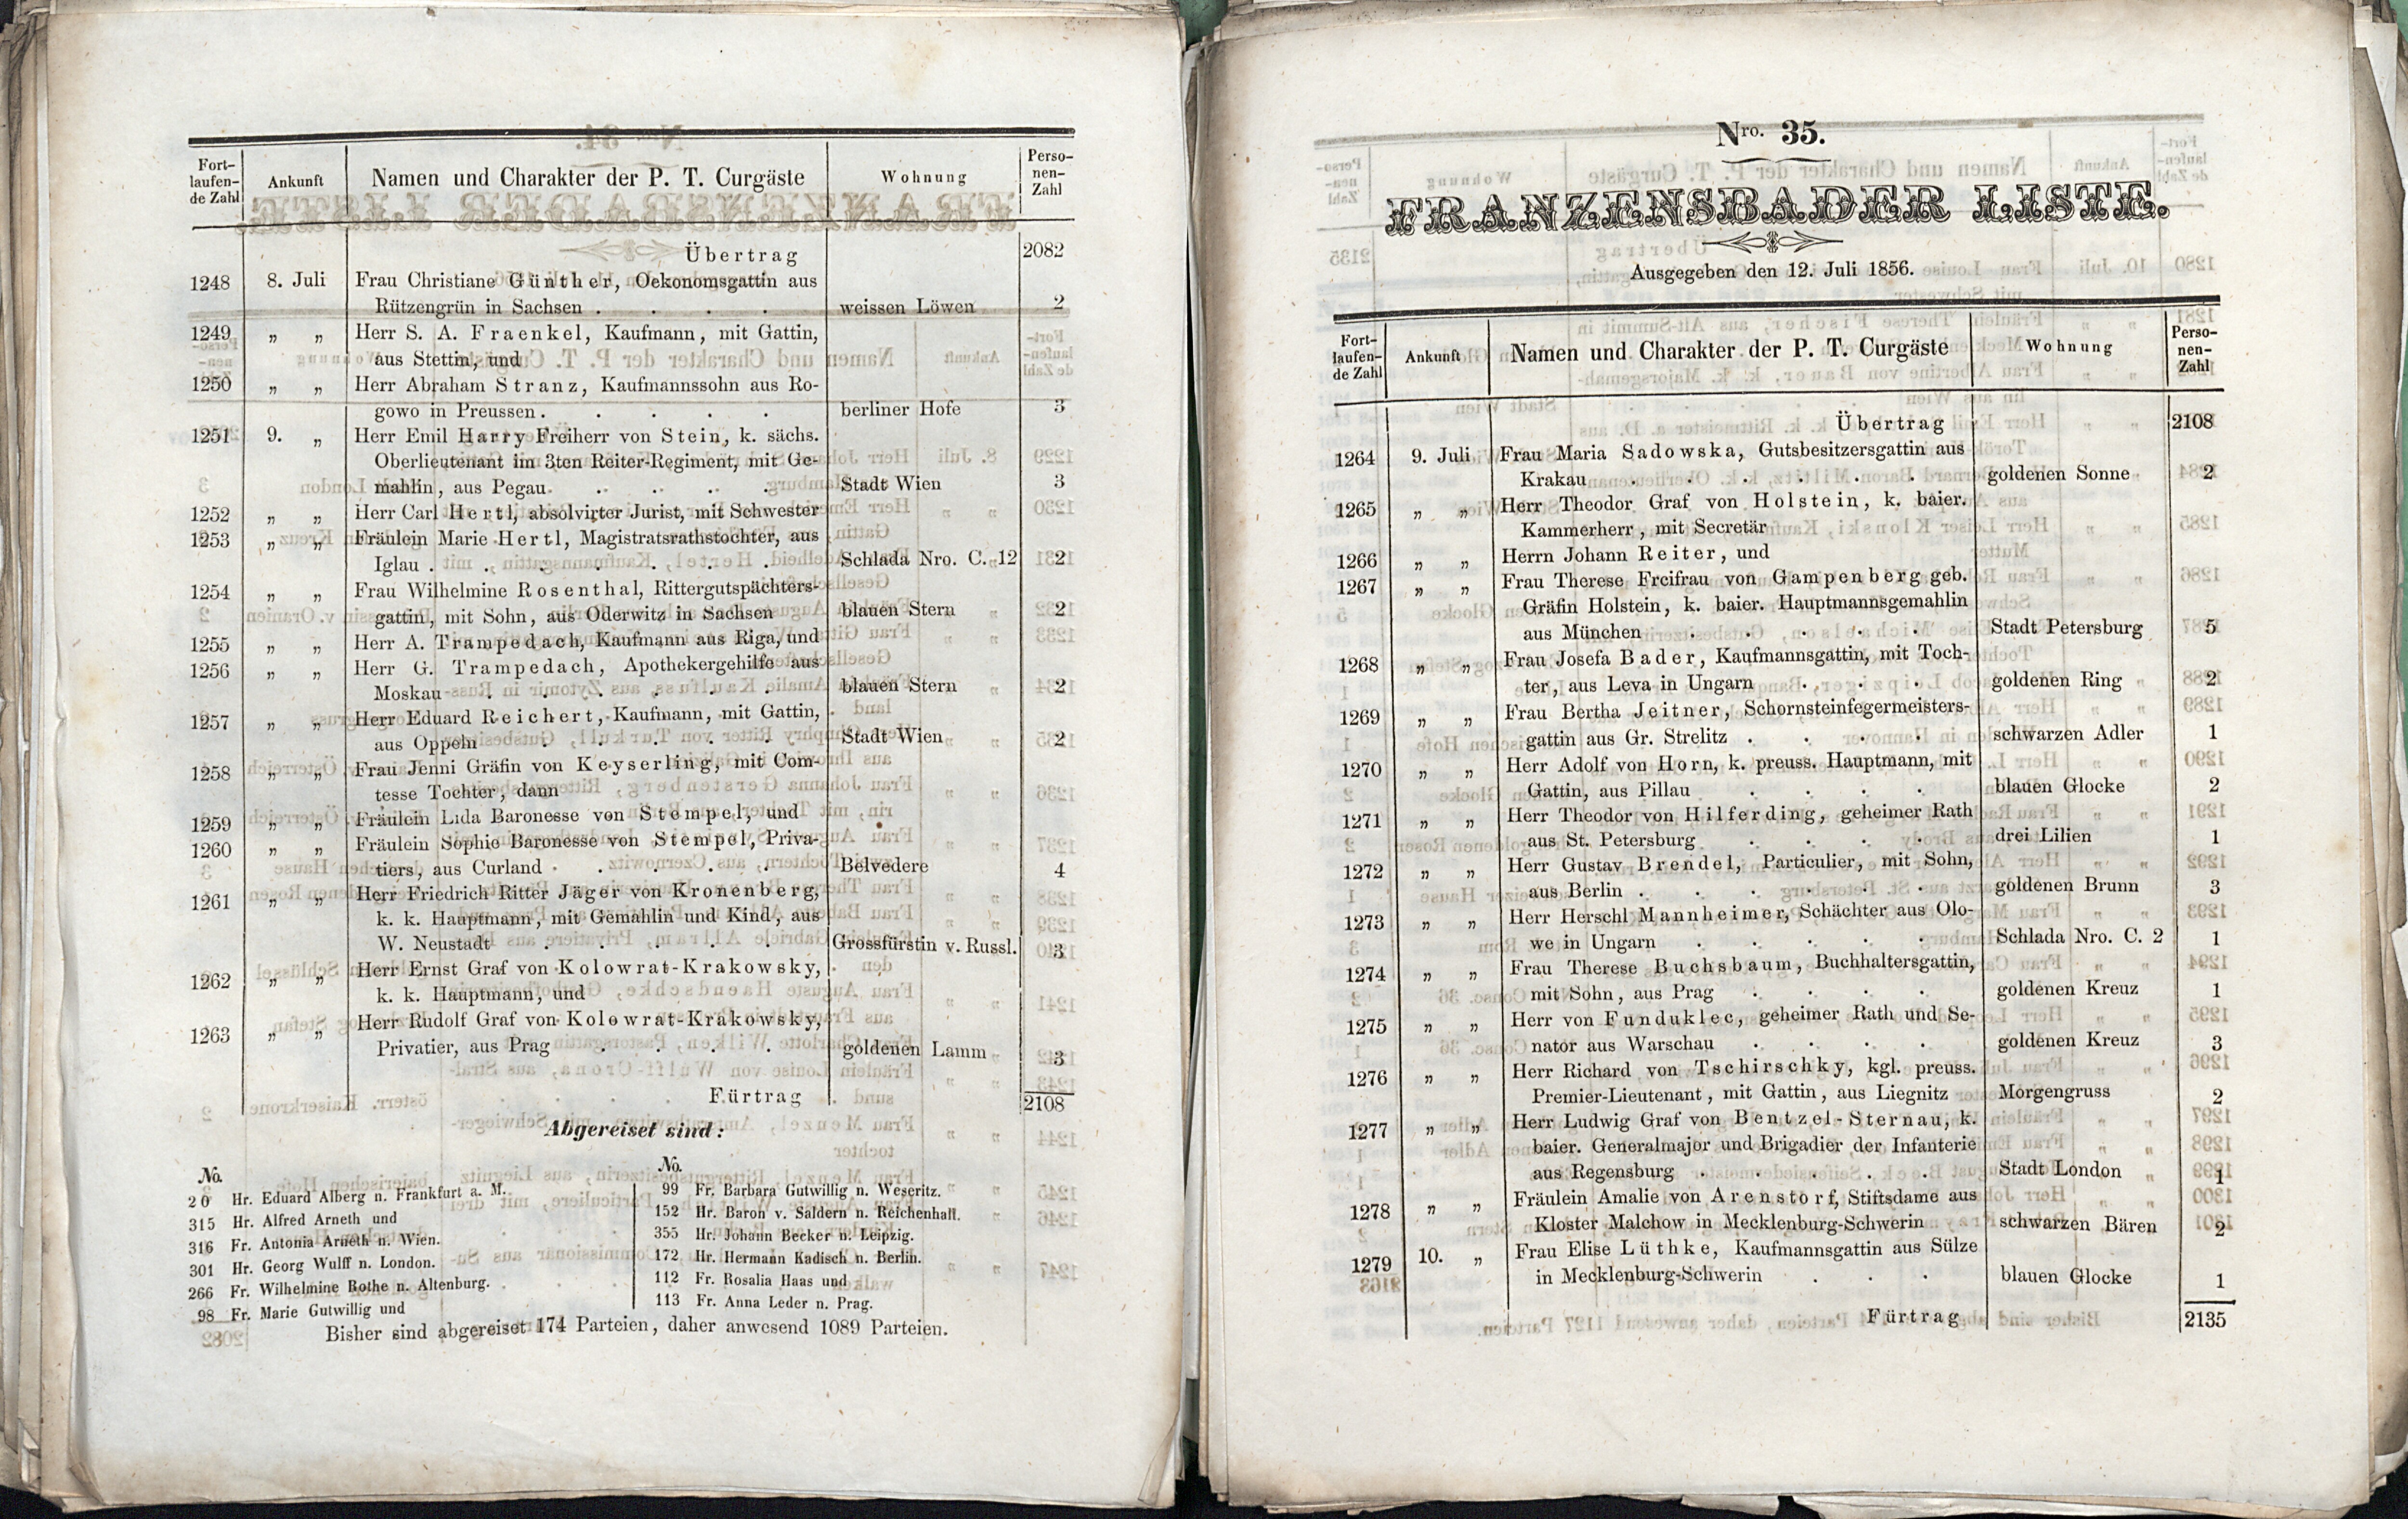 Fort-
laufen-
de Zahl
Ankunft
Namen und Charakter der P. T. Curgäste
Wohnung
Perso-
nen-
Zahl
Übertrag 2082
1248 8. Juli Frau Christiane Günther, Oekonomsgattin aus
Rützengrün in Sachsen . . . . weissen Löwen 2
1249 „ „ Herr S. A. Fraenkel, Kaufmann, mit Gattin,
aus Stettin, und
1250 „ „ Herr Abraham Stranz, Kaufmannssohn aus Ro-
gowo in Preussen . . . . . berliner Hofe 3
1251 9. „ Herr Emil Harry Freiherr von Stein, k. sächs.
Oberlieutenant im 3ten Reiter-Regiment, mit Ge-
mahlin, aus Pegau . . . . Stadt Wien 3
1252 „ „ Herr Carl Hertl, absolvirter Jurist, mit Schwester
1253 „ „ Fräulein Marie Hertl, Magistratsrathstochter, aus
Iglau . . . . . . . Schlada Nro. C. 12 2
1254 „ „ Frau Wilhelmine Rosenthal, Rittergutspächters-
gattin, mit Sohn, aus Oderwitz in Sachsen blauen Stern 2
1255 „ „ Herr A. Trampedach, Kaufmann aus Riga, und
1256 „ „ Herr G. Trampedach, Apothekergehilfe aus
Moskau . . . . . . blauen Stern 2
1257 „ „ Herr Eduard Reichert, Kaufmann, mit Gattin,
aus Oppeln . . . . . Stadt Wien 2
1258 „ „ Frau Jenni Gräfin von Keyserling, mit Com-
tesse Tochter, dann
1259 „ „ Fräulein Lida Baronesse von Stempel, und
1260 „ „ Fräulein Sophie Baronesse von Stempel, Priva-
tiers, aus Curland . . . . Belvedere 4
1261 „ „ Herr Friedrich Ritter Jäger von Kronenberg,
k. k. Hauptmann, mit Gemahlin und Kind, aus
W. Neustadt . . . . . Grossfürstin v. Russl. 3
1262 „ „ Herr Ernst Graf von Kolowrat-Krakowsky,
k. k. Hauptmann, und
1263 „ „ Herr Rudolf Graf von Kolowrat-Krakowsky,
Privatier, aus Prag . . . . goldenen Lamm 3
Fürtrag 2108
Abgereiset sind:
No.
20 Hr. Eduard Alberg n. Frankfurt a. M.
315 Hr. Alfred Arneth und
316 Fr. Antonia Arneth n. Wien.
301 Hr. Georg Wulff n. London.
266 Fr. Wilhelmine Rothe n. Altenburg.
98 Fr. Marie Gutwillig und
No.
99 Fr. Barbara Gutwillig n. Weseritz.
152 Hr. Baron v. Saldern n. Reichenhall.
355 Hr. Johann Becker n. Leipzig.
172 Hr. Hermann Kadisch n. Berlin.
112 Fr. Rosalia Haas und
113 Fr. Anna Leder n. Prag.
Bisher sind abgereiset 174 Parteien, daher anwesend 1089 Parteien.
Nro. 35.
FRANZENSBADER LISTE.
Ausgegeben den 12. Juli 1856.
Fort-
laufen-
de Zahl
Ankunft
Namen und Charakter der P. T. Curgäste
Wohnung
Perso-
nen-
Zahl
Übertrag 2108
1264 9. Juli Frau Maria Sadowska, Gutsbesitzersgattin aus
Krakau . . . . . . goldenen Sonne 2
1265 „ „ Herr Theodor Graf von Holstein, k. baier.
Kammerherr, mit Secretär
1266 „ „ Herrn Johann Reiter, und
1267 „ „ Frau Therese Freifrau von Gampenberg geb.
Gräfin Holstein, k. baier. Hauptmannsgemahlin
aus München . . . . . Stadt Petersburg 5
1268 „ „ Frau Josefa Bader, Kaufmannsgattin, mit Toch-
ter, aus Leva in Ungarn . . . goldenen Ring 2
1269 „ „ Frau Bertha Jeitner, Schornsteinfegermeisters-
gattin aus Gr. Strelitz . . . . schwarzen Adler 1
1270 „ „ Herr Adolf von Horn, k. preuss. Hauptmann, mit
Gattin, aus Pillau . . . . blauen Glocke 2
1271 „ „ Herr Theodor von Hilferding, geheimer Rath
aus St. Petersburg . . . . drei Lilien 1
1272 „ „ Herr Gustav Brendel, Particulier, mit Sohn,
aus Berlin . . . . . . goldenen Brunn 3
1273 „ „ Herr Herschl Mannheimer, Schächter aus Olo-
we in Ungarn . . . . . Schlada Nro. C. 2 1
1274 „ „ Frau Therese Buchsbaum, Buchhaltersgattin,
mit Sohn, aus Prag . . . . goldenen Kreuz 1
1275 „ „ Herr von Funduklec, geheimer Rath und Se-
nator aus Warschau . . . . goldenen Kreuz 3
1276 „ „ Herr Richard von Tschirschky, kgl. preuss.
Premier-Lieutenant, mit Gattin, aus Liegnitz Morgengruss 2
1277 „ „ Herr Ludwig Graf von Bentzel-Sternau, k.
baier. Generalmajor und Brigadier der Infanterie
aus Regensburg . . . . . Stadt London 1
1278 „ „ Fräulein Amalie von Arenstorf, Stiftsdame aus
Kloster Malchow in Mecklenburg-Schwerin schwarzen Bären 2
1279 10. „ Frau Elise Lüthke, Kaufmannsgattin aus Sülze
in Mecklenburg-Schwerin . . . blauen Glocke 1
Fürtrag 2135